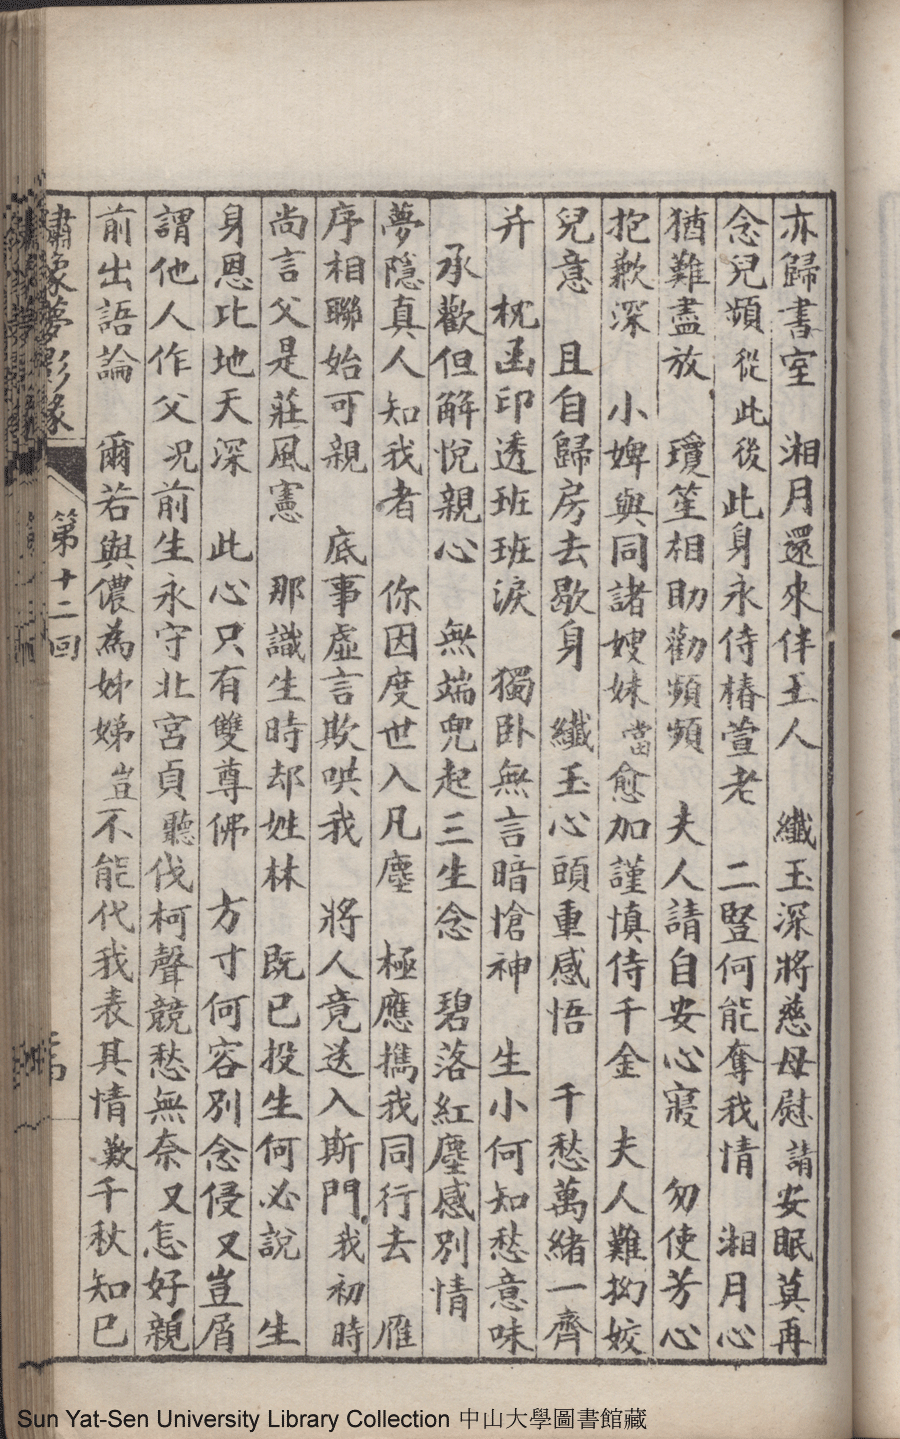 亦歸書室　湘月還來伴玉人　纖玉深將慈母慰請安眠莫再
念兒頻從此後此身永侍椿萱老　二豎何能奪我情　湘月心
猶難盡放　瓊笙相助勸頻頻　夫人請自安心寢　勿使芳心
抱歉深　小婢與同諸嫂妹當愈加謹慎侍千金　夫人難拗姣
兒意　且自歸房去歇身　纖玉心頭重感悟　千愁萬緒一齊
并　枕函印透班班淚　獨卧無言暗愴神　生小何知愁意味
承歡但解悅親心　無端兜起三生念　碧落紅塵感別情
夢隱真人知我者　你因度世入凡塵　極應攜我同行去　雁
序相聯始可親　底事虛言欺哄我　將人竟送入斯門我初時
尚言父是莊風憲　那識生時却姓林　既已投生何必說　生
身恩比地天深　此心只有雙尊佛　方寸何容別念侵又豈屑
謂他人作父况前生永守北宮貞聽伐柯聲競愁無奈又怎好親
前出語論　爾若與儂為姊娣豈不能代我表其情歎千秋知已
繡象夢影緣
第十二回